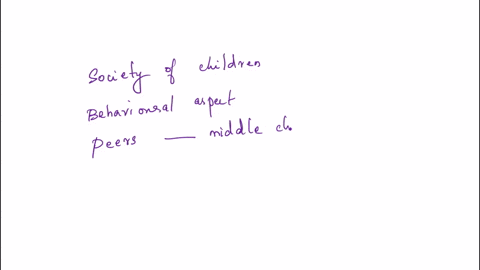 Society of children
Behavioural aspect
Peers — middle ch